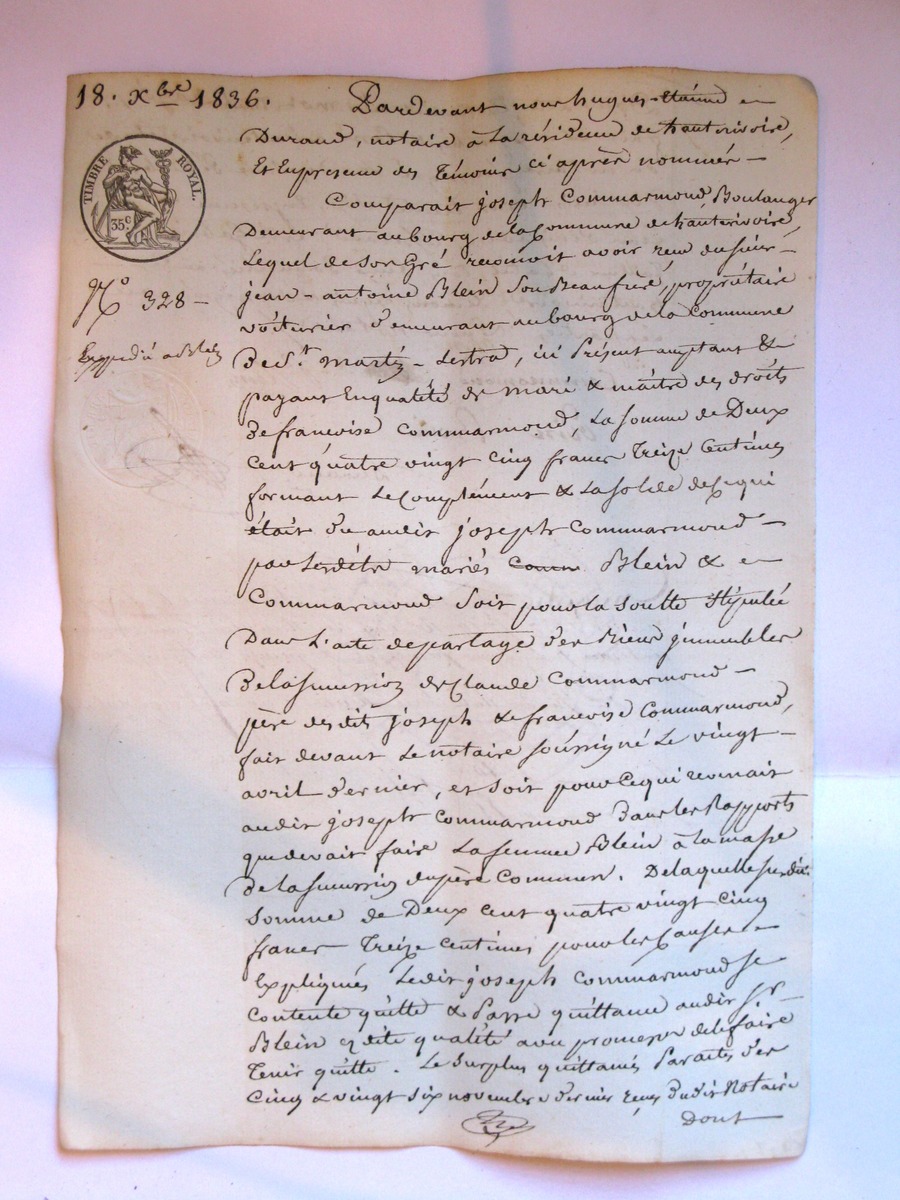 18. Xbre 1836.
Pardevant nous hugues-Etienne
Durand, notaire à la résidence de hauterivoire,
Et En presence des Témoins ci après nommés —
Comparait joseph Commarmond Boulanger
Demeurant au bourg de la Commune de hauterivoire,
Lequel de son Gré reconnoit avoir reçu du sieur —
jean-antoine Blein son Beaufrère, propriétaire
voiturier Demeurant au bourg de la Commune
De St. martin-Lestra, ici Présent acceptant &
payant En qualité de mari & maître des droits
De francoise Commarmond, La somme de Deux
Cent quatre vingt Cinq francs Treize Centimes
formant Le Complément & La solde de Ce qui
était Du audit joseph Commarmond —
par Lesdits mariés Comm Blein & —
Commarmond Soit pour la soulte stipulée
Dans L'acte de partage Des Biens jmmeubles
De la succession de Claude Commarmond —
père des dit joseph & francoise Commarmond,
fait devant Le notaire soussigné Le vingt —
avril Dernier, et soit pour Ce qui revenait
audit joseph Commarmond Dans les Rapports
que devait faire La femme Blein à la masse
De la succession du père Commun. De laquelle susdite
Somme de Deux cent quatre vingt Cinq
francs Treize Centimes pour les Causes
Expliquées Ledit joseph Commarmond se
Contente quitte & Passe quittance audit Sr —
Blein en dite qualité avec promesse de le faire
Tenir quitte. Le Surplus quittancé Par actes Des
Cinq & vingt six novembre Dernier reçus Dudit Notaire
Dont
TIMBRE ROYAL.
35c
No 328 —
Expédié à Blein